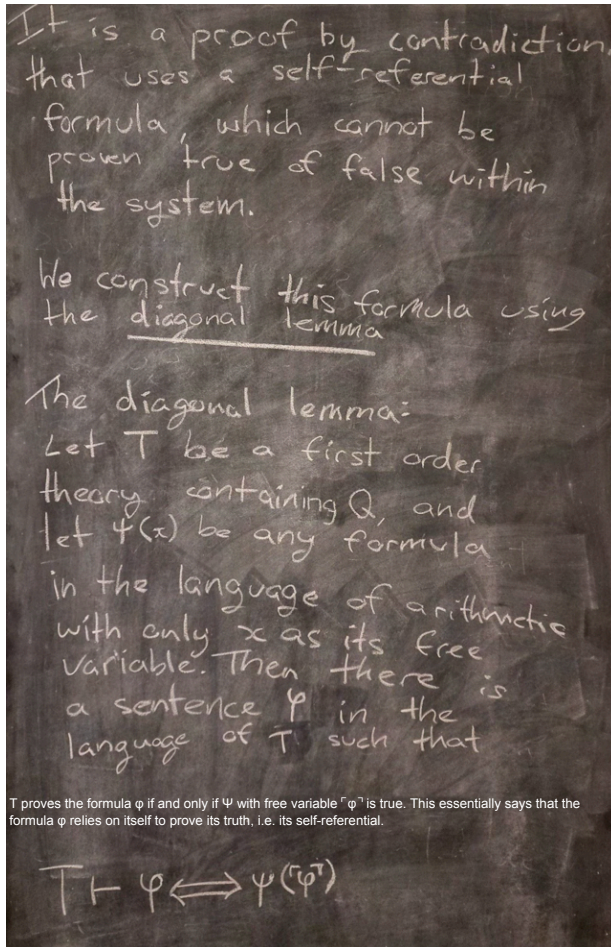 It is a proof by contradiction,
that uses a self-referential
formula, which cannot be
proven true of false within
the system.
We construct this formula using
the diagonal lemma
The diagonal lemma:
Let T be a first order
theory containing Q, and
let Ψ(x) be any formula
in the language of arithmetic
with only x as its free
variable. Then there is
a sentence φ in the
language of T such that
T proves the formula φ if and only if Ψ with free variable ⌜φ⌝ is true. This essentially says that the
formula φ relies on itself to prove its truth, i.e. its self-referential.
T ⊢ φ ⟺ Ψ(⌜φ⌝)